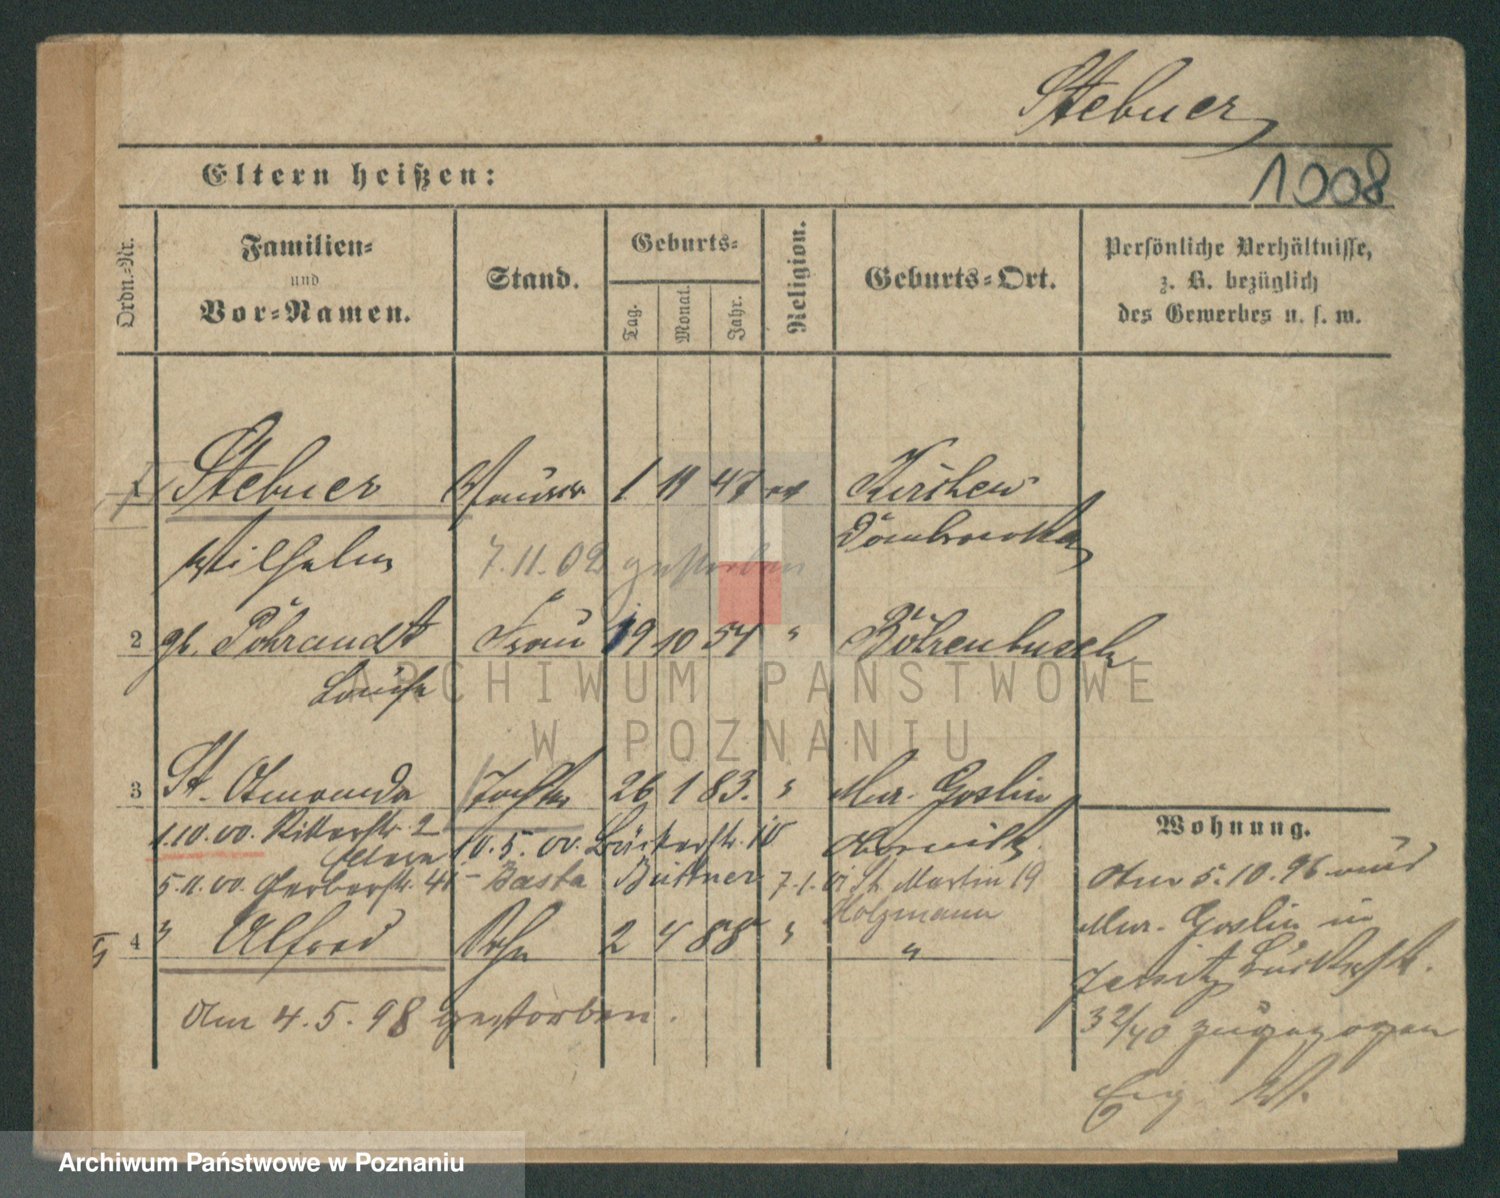 Stebner
1008
Eltern heißen:
Ordn.-Nr.
Familien-
und
Vor-Namen.
Stand.
Geburts-
Tag.
Monat.
Jahr.
Religion.
Geburts-Ort.
Persönliche Verhältnisse,
z. B. bezüglich
des Gewerbes u. s. w.
Stebner 1 11 47 ev Kirchen
Dombrowka
Wilhelm 7.11.02 gestorben
2 gb. Pohrandt Frau 19 10 54 " Böhrenbusch
Louise
ARCHIWUM PAŃSTWOWE
W POZNANIU
3 St. Amanda Tochter 26 1 83. " Mur. Goslin
1.10.00. Ritterstr. 2 10.5.00. Bäckerstr. 10 Obornik
5.11.00. Gerberstr. 41 - Basta Büttner 7.1.01 St. Martin 19
Holzmann
4 " Alfred Sohn 2 4 88 " "
Am 4.5.98 gestorben.
Wohnung.
Am 5.10.96 aus
Mur. Goslin in
Jersitz
32/40 zugezogen
Archiwum Państwowe w Poznaniu